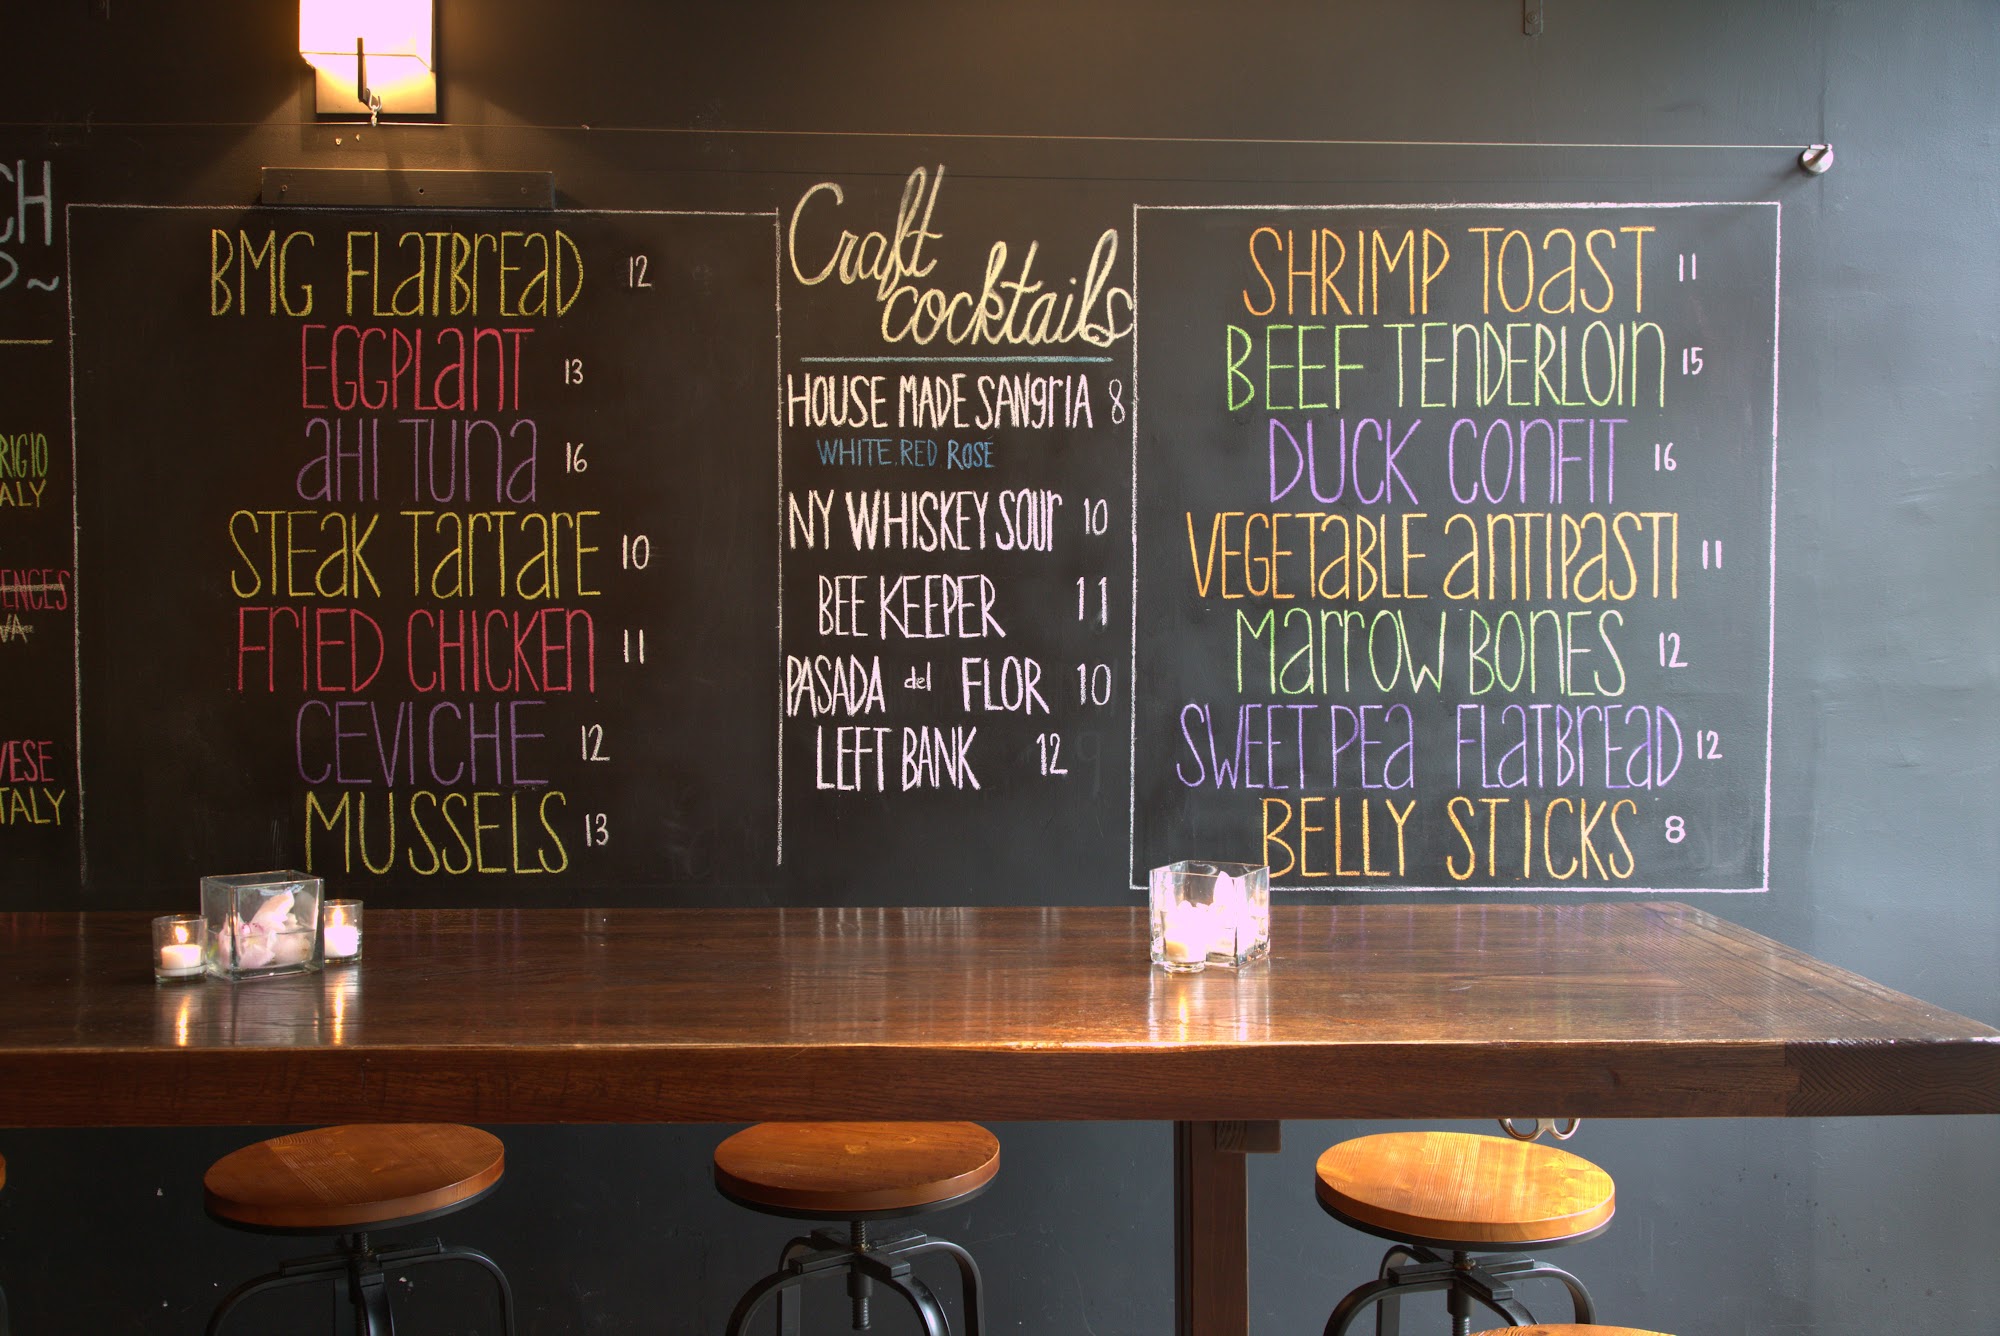 CH
RIGIO
ALY
ENCES
VA
VESE
ITALY
BMG FLATBREAD 12
EGGPLANT 13
AHI TUNA 16
STEAK TARTARE 10
FRIED CHICKEN 11
CEVICHE 12
MUSSELS 13
Craft
cocktails
HOUSE MADE SANGRIA 8
WHITE, RED, ROSÉ
NY WHISKEY SOUR 10
BEE KEEPER 11
PASADA del FLOR 10
LEFT BANK 12
SHRIMP TOAST 11
BEEF TENDERLOIN 15
DUCK CONFIT 16
VEGETABLE ANTIPASTI 11
MARROW BONES 12
SWEET PEA FLATBREAD 12
BELLY STICKS 8